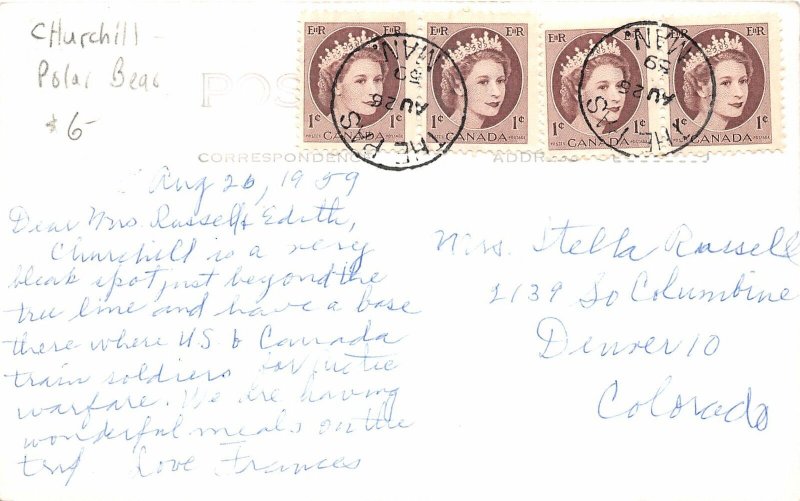 CHurchill -
Polar Bear
$6-
POS
CORRESPONDENC
ADDRESS
E II R E II R E II R E II R
1¢ 1¢ 1¢ 1¢
POSTES CANADA POSTAGE
CANADA POSTAGE
POSTES CANADA
CANADA POSTAGE
THE PAS
AU 26
59
MAN.
THE PAS
AU 26
59
MAN.
Aug 26, 1959
Dear Mrs. Russell & Edith,
Churchill is a very
bleak spot just beyond the
tree line and have a base
there where U.S. & Canada
train soldiers for Arctic
warfare. We are having
wonderful meals on the
trip. Love Frances
Mrs. Stella Russell
2139 So Columbine
Denver 10
Colorado